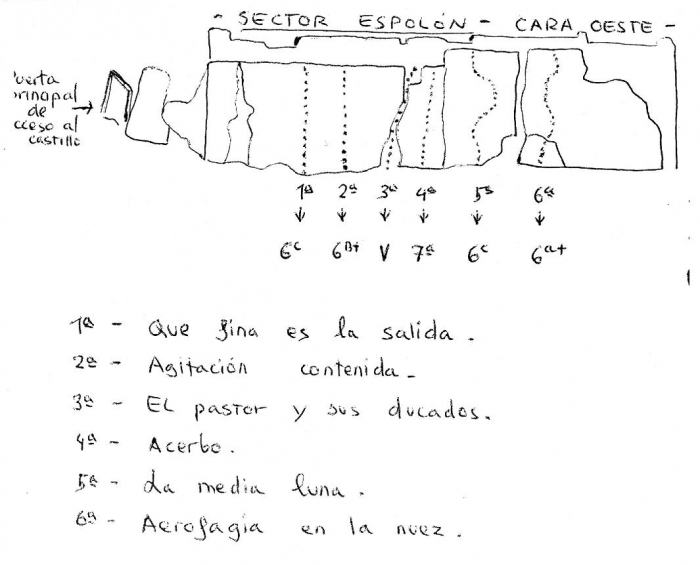 - SECTOR ESPOLÓN - CARA OESTE -
uerta
rincipal
de
cceso al
castillo
1ª 2ª 3ª 4ª 5ª 6ª
6c 6B+ V 7ª 6c 6a+
1ª - Que fina es la salida.
2ª - Agitación contenida.
3ª - EL pastor y sus ducados.
4ª - Acerbo.
5ª - La media luna.
6ª - Aerofagia en la nuez.